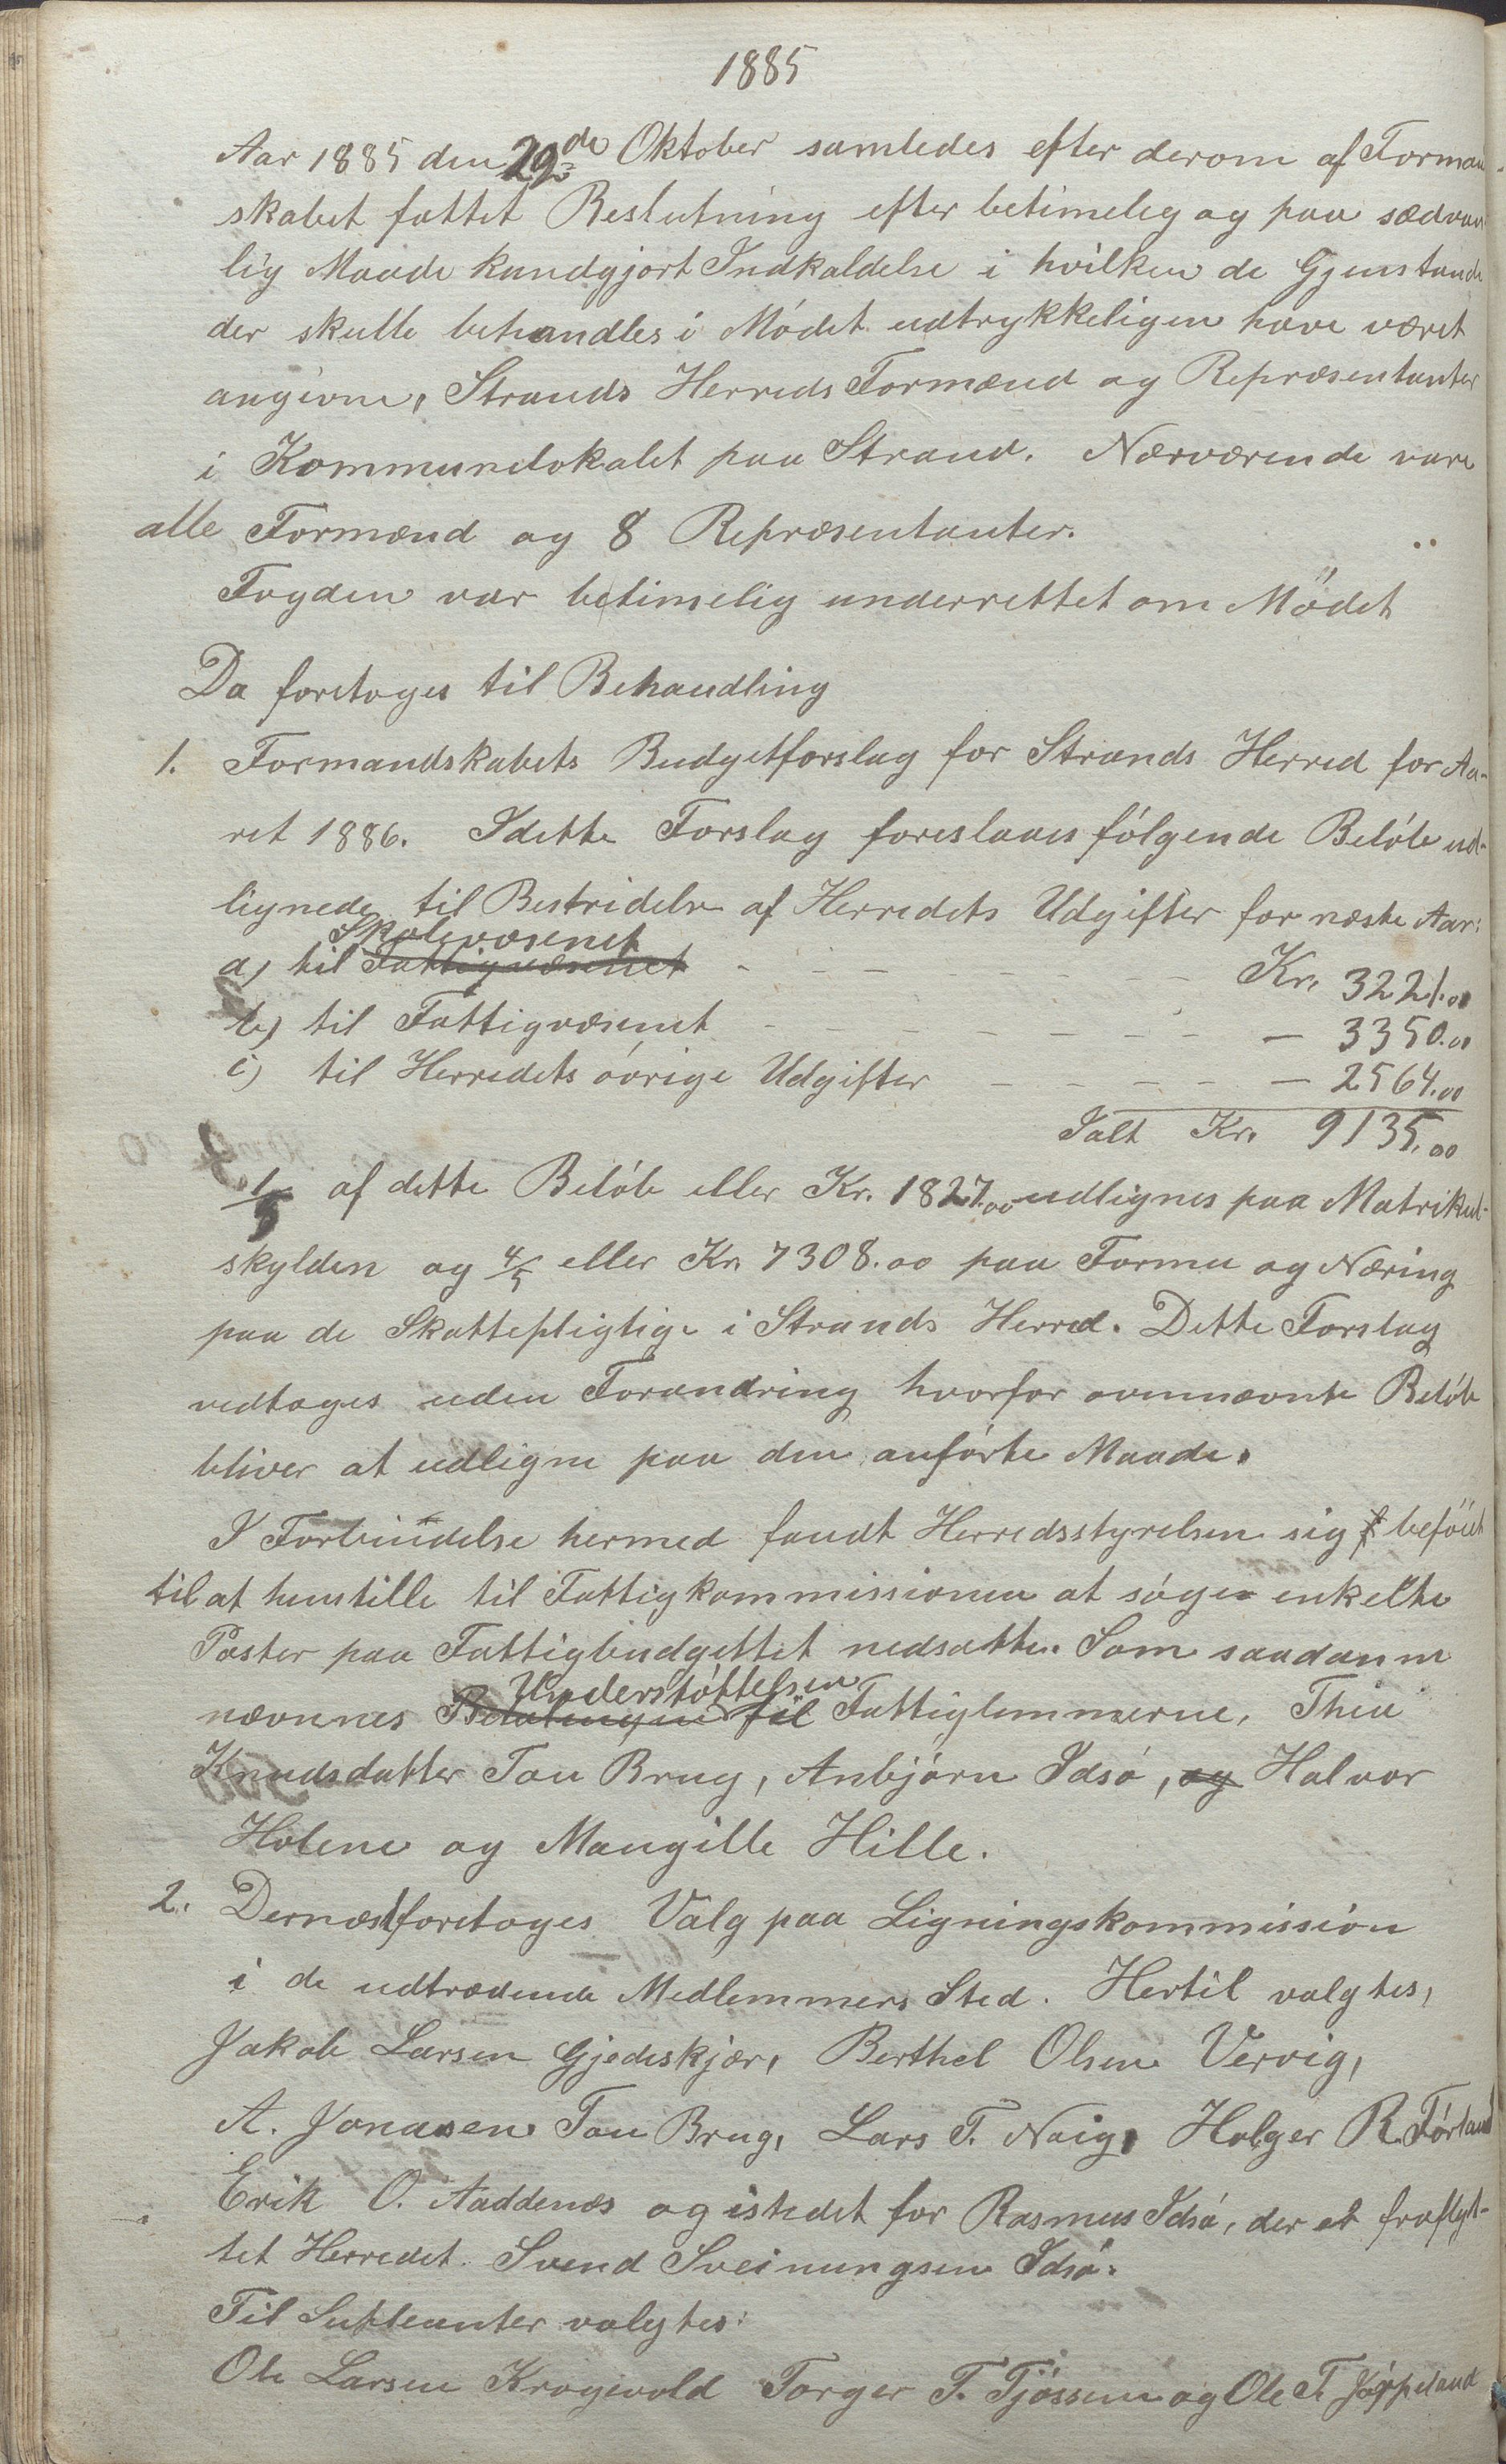 1885
Aar 1885 den 29de Oktober samledes efter derom af Forman-
skabet fattet Beslutning efter betimelig og paa sædvan-
lig Maade kundgjort Indkaldelse i hvilken de Gjenstande
der skulle behandles i Mødet udtrykkeligen have været
angivne, Strands Herreds Formænd og Repræsentanter
i Kommunelokalet paa Strand. Nærværende vare
alle Formænd og 8 Repræsentanter.
Fogden var betimelig underrettet om Mödet
Da foretoges til Behandling
1. Formandskabets Budgetforslag for Strands Herred for Aa-
ret 1886. I dette Forslag foreslaaes følgende Beløb ud-
lignede til Bestridelse af Herredets Udgifter for næste Aar:
Skolevæsenet
a) til Fattigvæsenet - - - - - - Kr. 3221.00
b) til Fattigvæsenet - - - - - - - — 3350.00
c) til Herredets øvrige Udgifter - - - - — 2564.00
Ialt Kr. 9135.00
1/5 af dette Beløb eller Kr. 1827.00 udlignes paa Matrikul-
skylden og 4/5 eller Kr. 7308.00 paa Formue og Næring
paa de Skattepligtige i Strands Herred. Dette Forslag
vedtoges uden Forandring hvorfor ovennævnte Beløb
bliver at udligne paa den anførte Maade.
I Forbindelse hermed fandt Herredsstyrelsen sig beföiet
til at henstille til Fattigkommissionen at søge enkelte
Poster paa Fattigbudgettet nedsatte. Som saadanne
Understøttelsen
nævnes Betalingen til Fattiglemmerne, Thea
Knudsdatter Tau Brug, Anbjørn Idsø, og Halvor
Holene og Mangille Hille.
2. Dernæst foretoges Valg paa Ligningskommission
i de udtrædende Medlemmers Sted. Hertil valgtes,
Jakob Larsen Gjedeskjær, Berthel Olsen Vervig,
A. Jonasen Tau Brug, Lars T. Nøig, Holger R. Førland
Erik O. Aaddenæs og istedet for Rasmus Idsø, der et fraflyt-
tet Herredet. Svend Sveinungsen Idsø.
Til Supleanter valgtes:
Ole Larsen Krogevold Torger T. Tjøssem og Ole T. Jøppeland